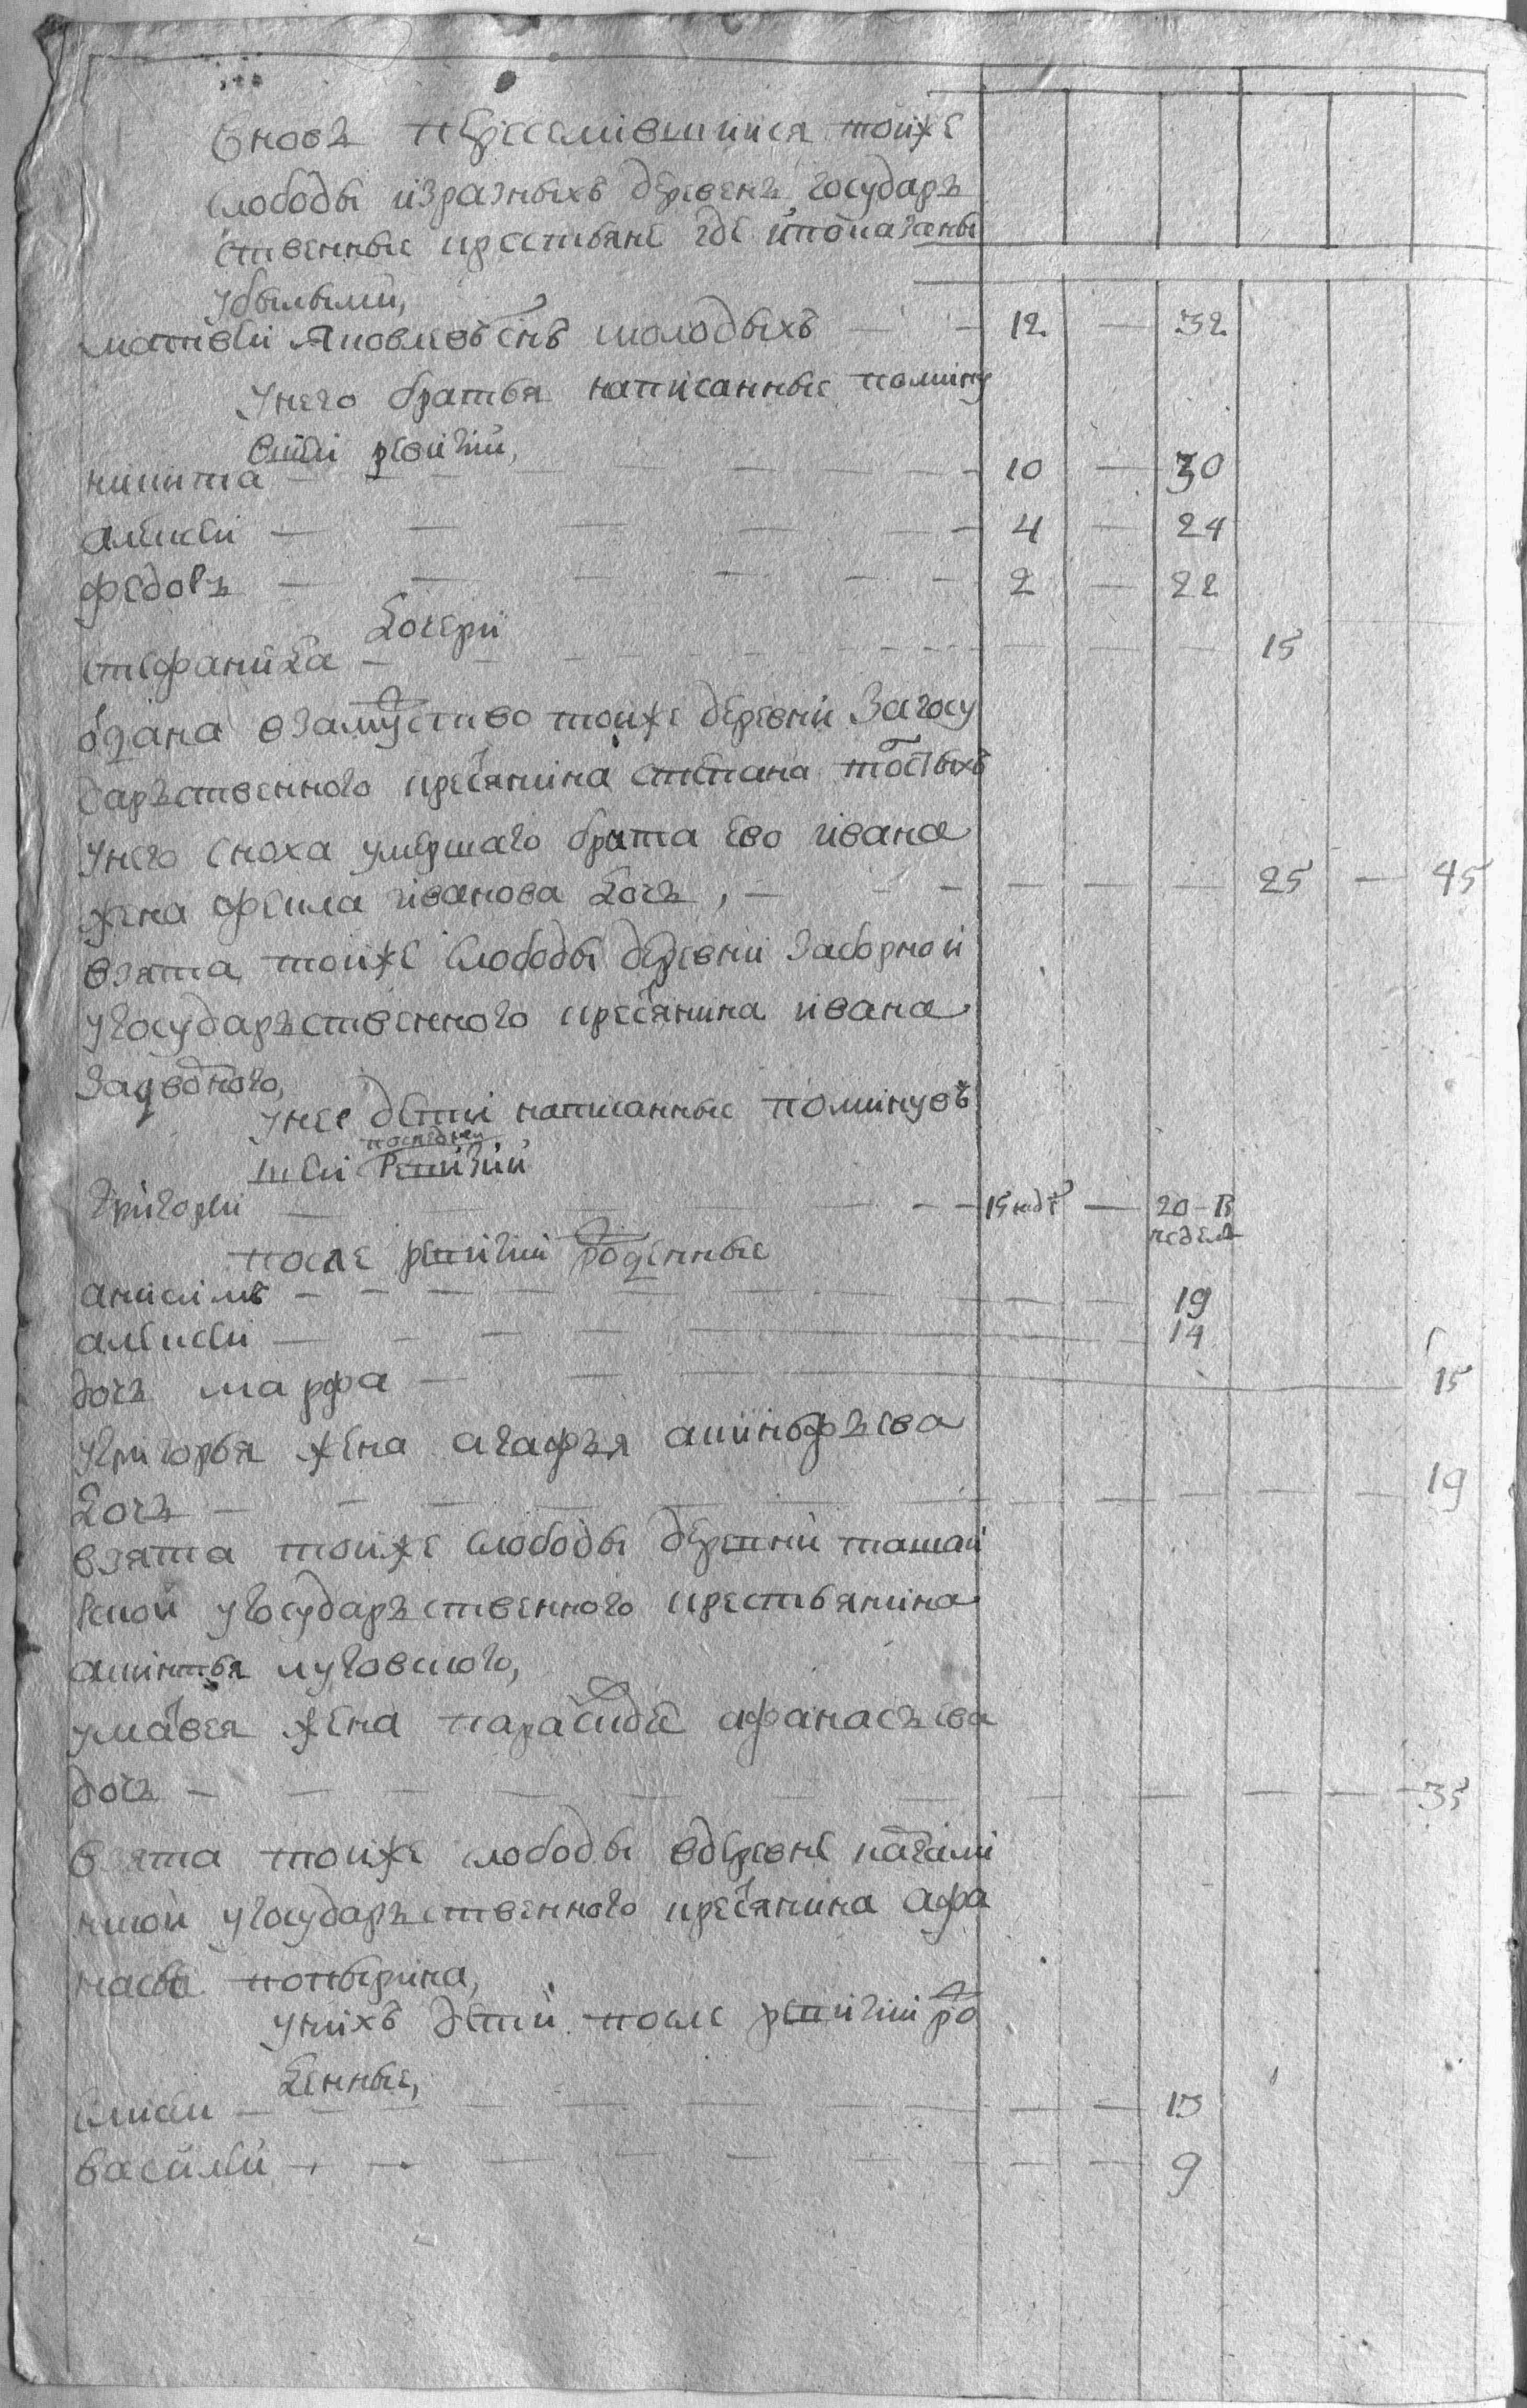 Вновь переселившиися тойже
слободы изразныхъ деревень государь
ственные крестьяне где и показаны
убылыми,
матвеи яковлевъ снъ молодыхъ — — 12 — 32
Унего братья написанные помину
вшеи ревизии,
никита — — — — — 10 — 30
алексеи — — — — — 4 — 24
федоръ — — — — — 2 — 22
дочери
стефанида — — — — — 15
одана взамуство тоиже деревни Загосу
дарьственного кресянина степана толстыхъ
Унего сноха умершаго брата ево ивана
жена фекла иванова дочь, — — — — 25 — 45
взята тоиже слободы деревни Заборной
угосударьственного кресянина ивана
Заводного,
Унее дети написанные поминув
последнеи
шеи Ревизии
Григореи — — — 15 недѣ — 20-15
недель
после ревизии роденные
анисимъ — — — — — 19
алексеи — — — — — 14
дочь марфа — — — 15
Угригорья жена агафья
дочь — — — — — 19
взята тоиже слободы деревни
ской угосударьственного крестьянина
луговского,
Уматвея жена параскидѣ афанасьева
дочь — — — — — 35
взята тоиже слободы вдеревне
ской угосударьственного кресянина афа
насья
Унихъ дети после ревизии ро
денные,
алексеи — — — — — 13
василеи — — — — — 9